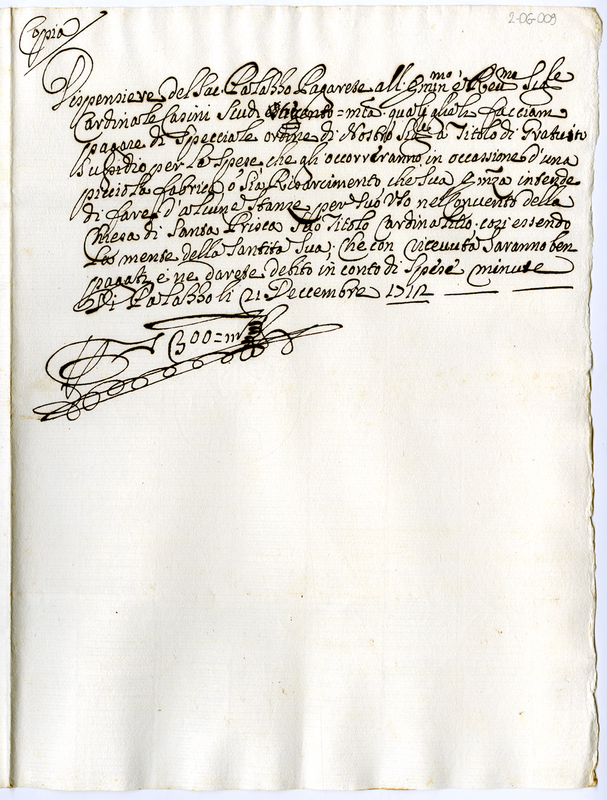 2-06-009
Copia
Dispensiere del Sac. Palazzo Pagarete all' Em.mo e Reu.mo Sig.re
Cardinale Casini Scudi = m.ta quali qual'e facciam
pagare di Specciale ordine di Nostro Sig.re a Titolo di Gratuito
Susidio per le Spese che gli occorreranno in occassione d'una
picciola fabrica, o sia Risarcimento che Sua Em.nza intende
di fare d'alcune Stanze per suo Uso nel Convento della
Chiesa di Santa Prisca Suo Titolo Cardinalitio; cosi essendo
la mente della Santità Sua; Che con ricevuta Saranno ben
pagati, e ne darete debito in conto di Spese minute
Di Palazzo li 21 Deccembre 1712
300 = m